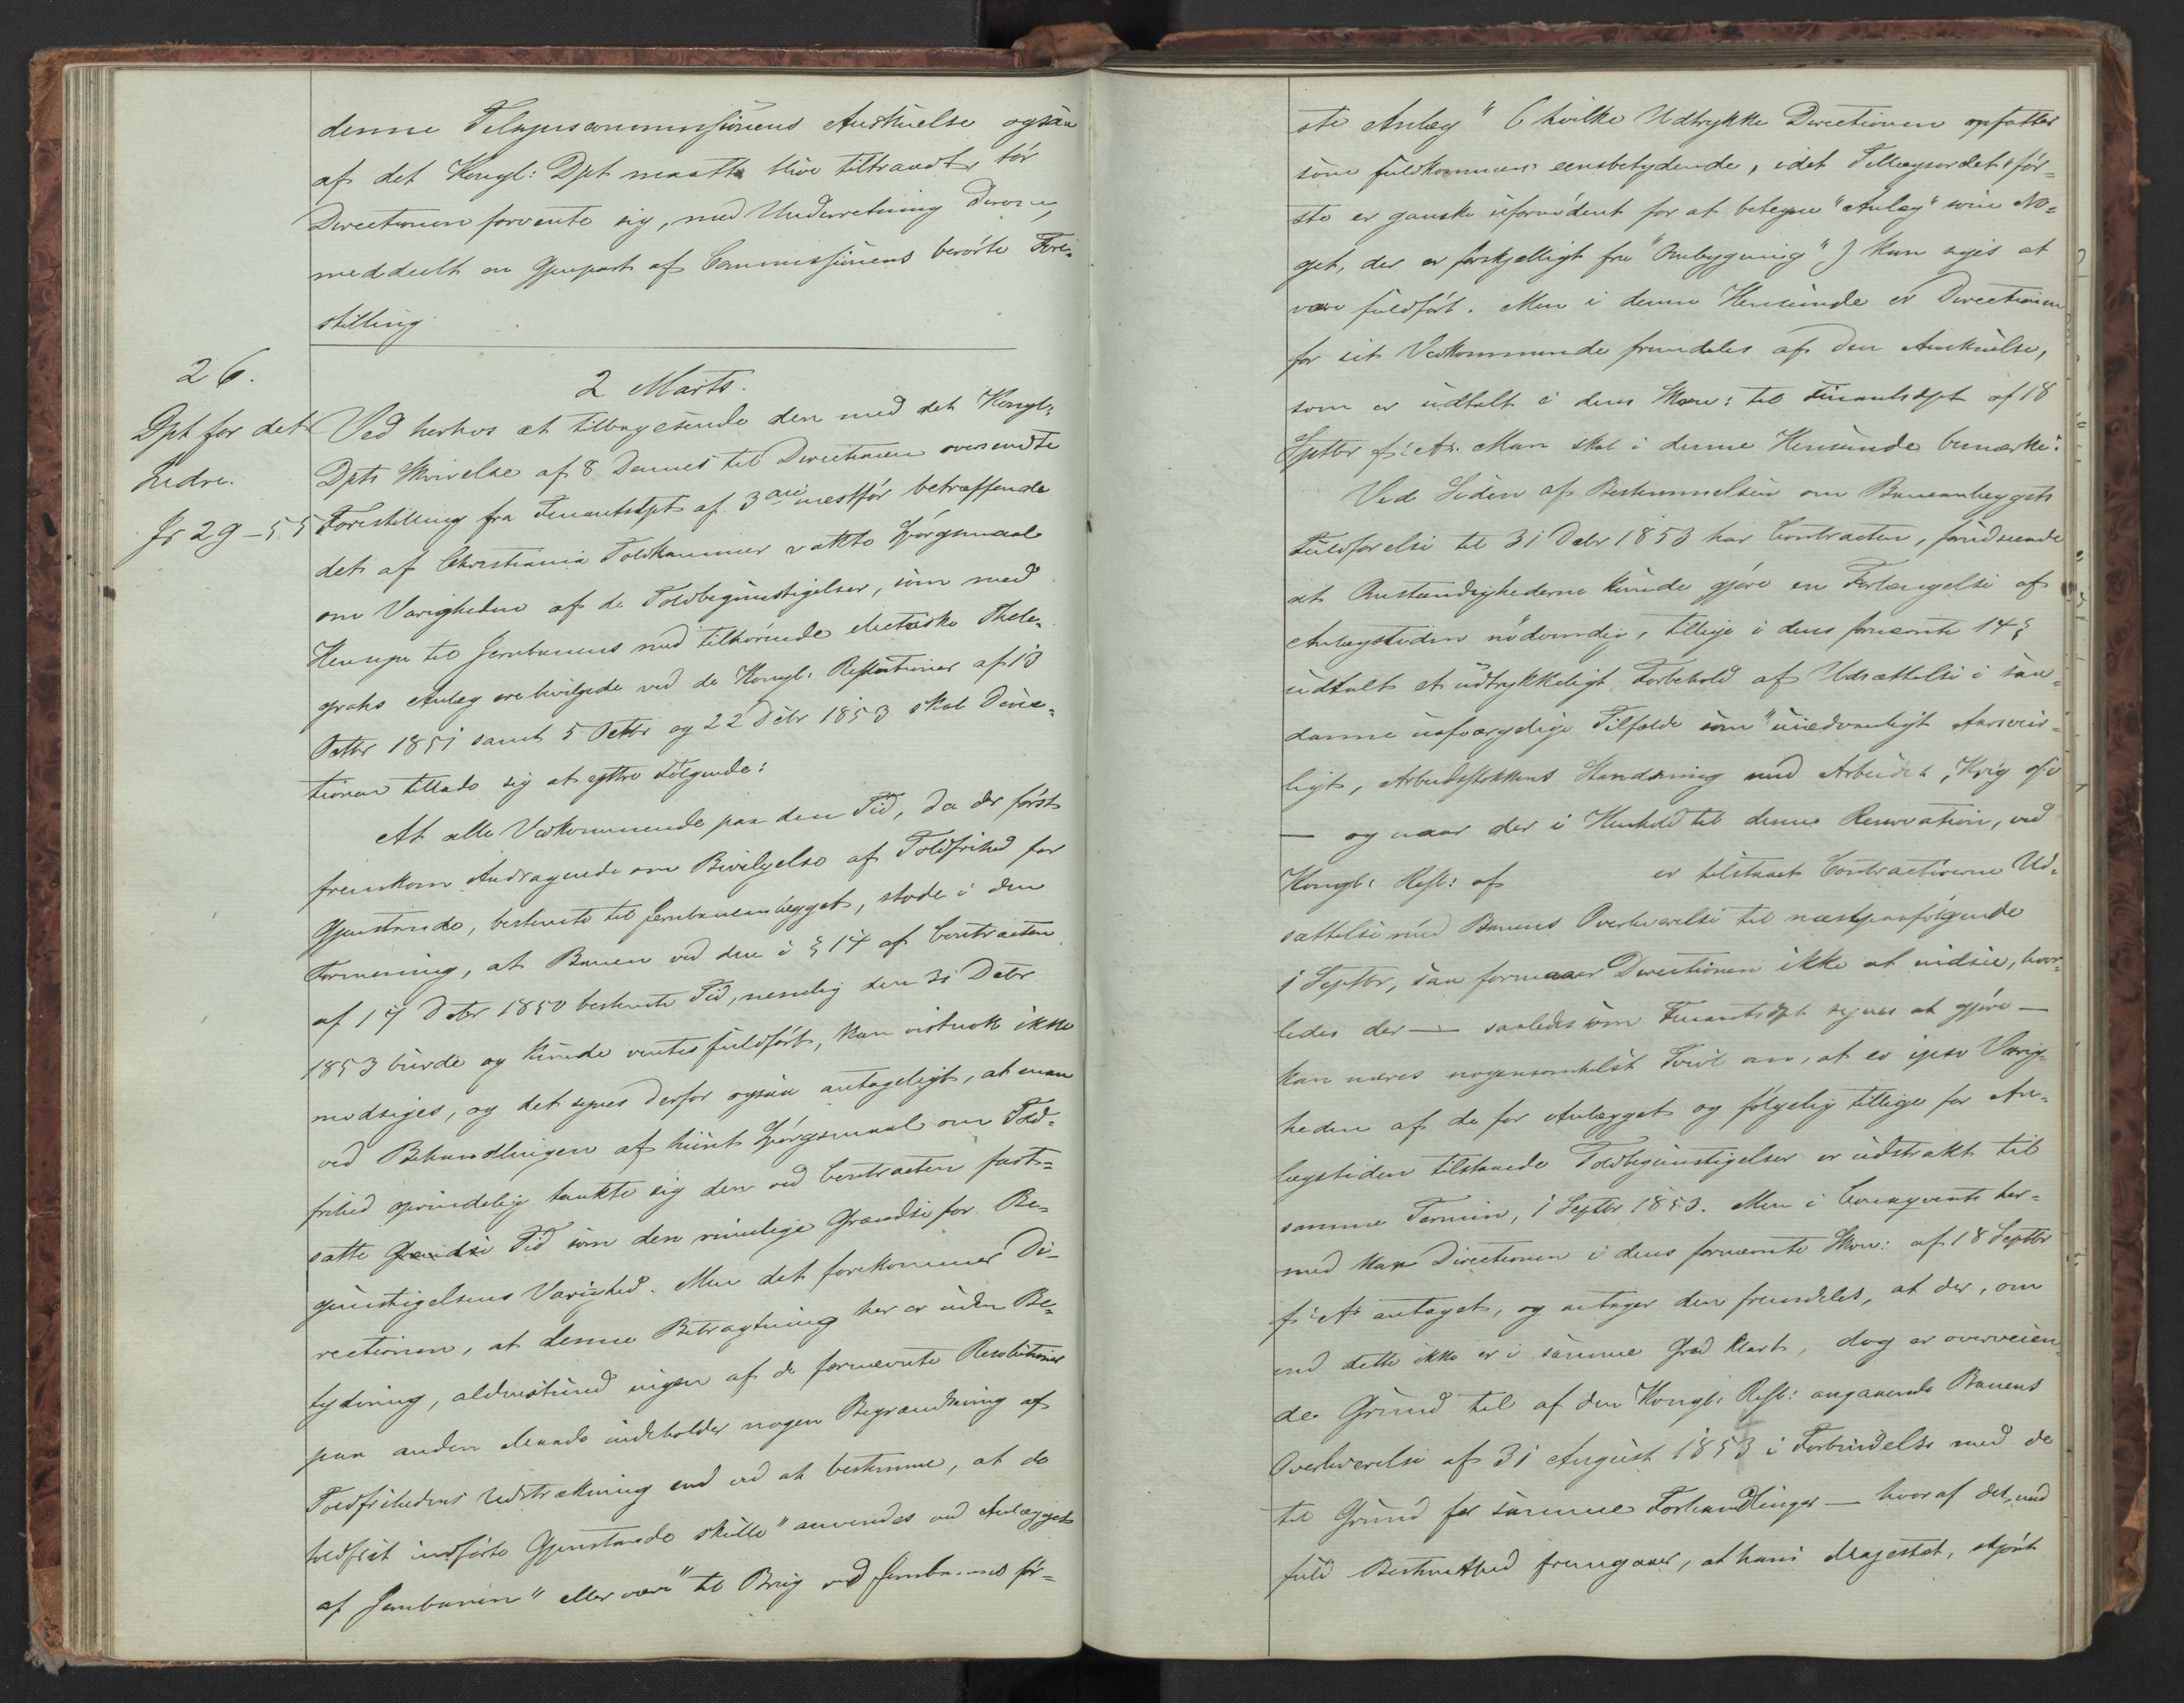 denne Tilsynscommissionens Anskuelse ogsaa
af det Kongl: Dpt maatte blive tiltraadt, tør
Directionen forvente sig, med Underretning derom,
meddeelt en Gjenpart af Commissionens berørte Fore-
stilling.
26.
2 Marts.
Dpt for det
Indre.
Jr 29-55
Ved herhos at tilbagesende den med det Kongl:
Dpts Skrivelse af 8 Dennes til Directionen oversendte
Forestilling fra Finantsdpt af 3die næstfør betræffende
det af Christiania Toldkammer vakte Spørgsmaal
om Varigheden af de Toldbegunstigelser, som med
Hensyn til Jernbanens med tilhørende electriske Thele-
graphs Anlæg ere bevilgede ved de Kongl: Resolutioner af 13
Octbr 1851 samt 5 Octbr og 22 Debr 1853 skal Direc-
tionen tillade sig at yttre Følgende:
At alle Vedkommende paa den Tid, da der først
fremkom Andragende om Bevilgelse af Toldfrihed for
Gjenstande, bestemte til Jernbaneanlægget, stode i den
Formening, at Banen ved den i § 14 af Contracten
af 17 Debr 1850 bestemte Tid, nemlig den 31 Debr
1853 burde og kunde ventes fuldført, kan vistnok ikke
modsiges, og det synes derfor ogsaa antageligt, at man
ved Behandlingen af hiint Spørgsmaal om Told-
frihed oprindelig tænkte sig den ved Contracten fast-
satte Grændse Tid som den rimelige Grændse for Be-
gunstigelsens Varighed. Men det forekommer Di-
rectionen, at denne Betragtning her er uden Be-
tydning, aldenstund ingen af de formeldte Resolutioner
paa anden Maade indeholder nogen Begrændsning af
Toldfrihedens Udstrækning end ved at bestemme, at de
toldfrit indførte Gjenstande skulle "anvendes ved Anlægget
af Jernbanen" eller være "til Brug ved Jernbanens før-
ste Anlæg" (hvilke Udtrykke Directionen opfatter
som fuldkommen eensbetydende, idet Tillægsordet før-
ste er ganske ufornødent for at betegne "Anlæg" som No-
get, der er forskjelligt fra "Ombygning") kan siges at
være fuldført. Men i denne Henseende er Directionen
for sit Vedkommende fremdeles af den Anskuelse,
som er udtalt i dens Skriv: til Finantsdpt af 18
Septbr f: A. Man skal i denne Henseende bemærke:
Ved Siden af Bestemmelsen om Baneanlæggets
Fuldførelse til 31 Debr 1853 har Contracten, forudseende
at Omstændighederne kunde gjøre en Forlængelse af
Anlægstiden nødvendig, tillige i dens formeldte 14 §
udtalt et udtrykkeligt Forbehold af Udsættelse i saa-
danne uafværgelige Tilfælde som "usædvanligt Aarsveir-
ligt, Arbeidsfolkens Standsning med Arbeidet, Krig osv
— og naar der i Henhold til denne Reservation, ved
Kongl: Resl: af er tilstaaet Contractørerne Ud-
sættelse med Banens Overleverelse til næstpaafølgende
1 Septbr, saa formaaer Directionen ikke at indsee, hvor-
ledes der — saaledes som Finantsdpt synes at gjøre —
kan næres nogensomhelst Tvivl om, at eo ipso Varig-
heden af de for Anlægget og følgelig tillige for An-
lægstiden tilstaaede Toldbegunstigelser er udstrakt til
samme Termin, 1 Septbr 1853. Men i Conseqvents her-
med har Directionen i dens formeldte Skriv: af 18 Septbr
f: A antaget, og antager den fremdeles, at der, om
end dette ikke er i samme Grad klart, dog er overveien-
de Grund til af den Kongl: Resl: angaaende Banens
Overleverelse af 31 August 1853 i Forbindelse med de
til Grund for samme Forhandlinger — hvoraf det med
fuld Bestemthed fremgaaer, at hans Majestæt, skjønt